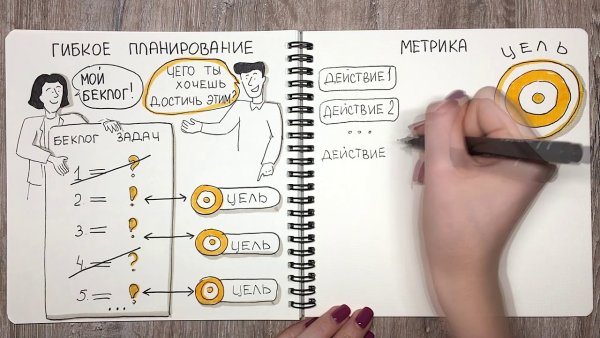 ГИБКОЕ ПЛАНИРОВАНИЕ
МОЙ
БЕКЛОГ!
ЧЕГО ТЫ
ХОЧЕШЬ
ДОСТИЧЬ ЭТИМ?
БЕКЛОГ ЗАДАЧ
1 = ?
2 = ?
ЦЕЛЬ
3 = ?
ЦЕЛЬ
4 = ?
5. = ?
ЦЕЛЬ
...
МЕТРИКА
ЦЕЛЬ
ДЕЙСТВИЕ 1
ДЕЙСТВИЕ 2
...
ДЕЙСТВИЕ